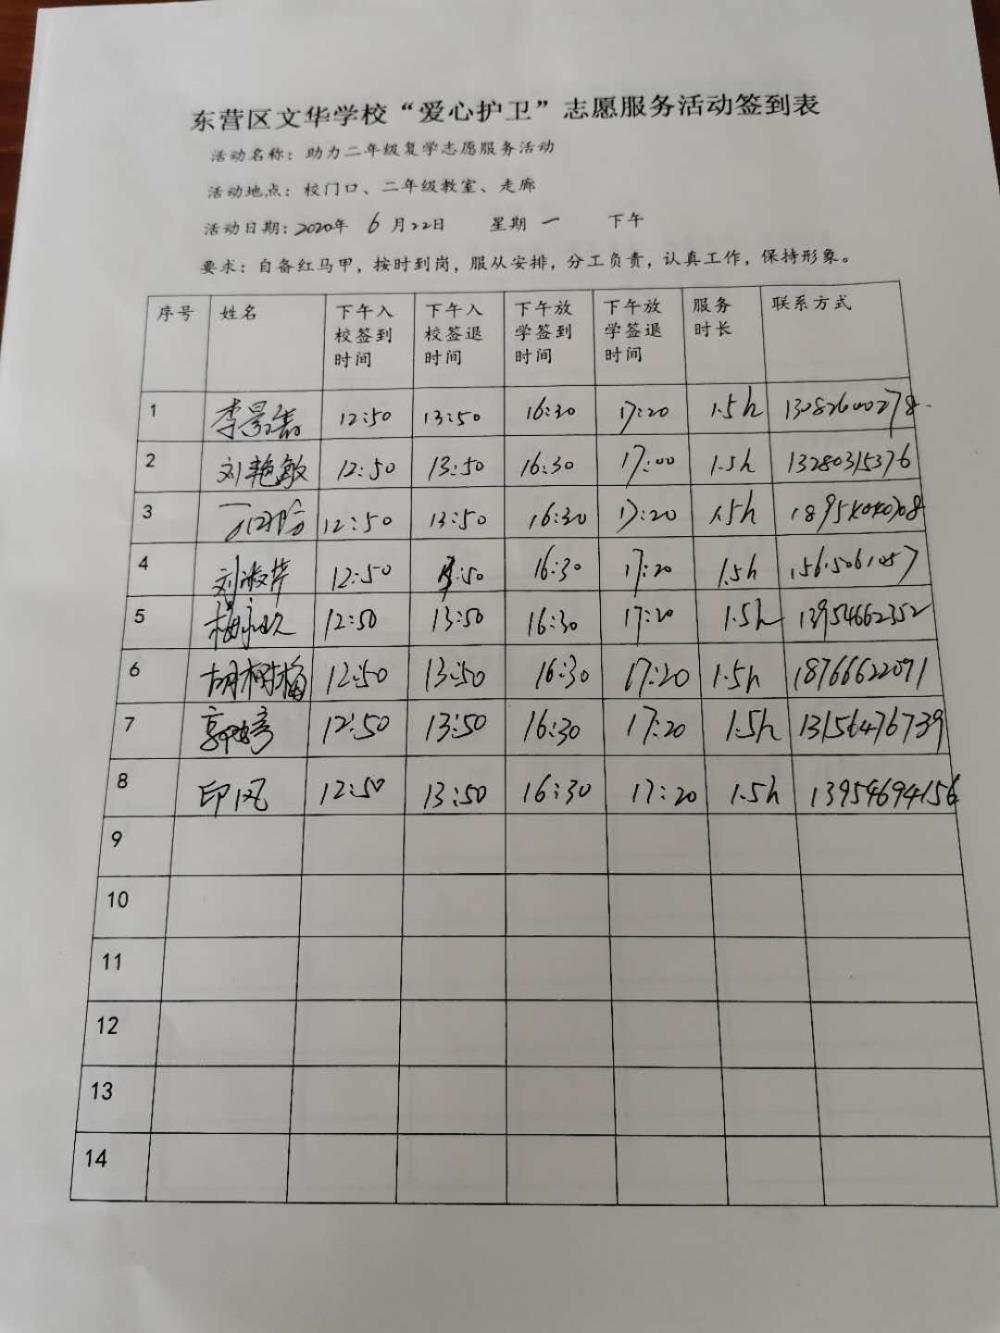 东营区文华学校“爱心护卫”志愿服务活动签到表
活动名称：助力二年级复学志愿服务活动
活动地点：校门口、二年级教室、走廊
活动日期：2020年 6 月22日 星期 一 下午
要求：自备红马甲，按时到岗，服从安排，分工负责，认真工作，保持形象。
序号 姓名 下午入校签到时间 下午入校签退时间 下午放学签到时间 下午放学签退时间 服务时长 联系方式
1 12:50 13:50 16:30 17:20 1.5h 13082600278
2 刘艳敏 12:50 13:50 16:30 17:00 1.5h 13280315376
3 12:50 13:50 16:30 17:20 1.5h
4 刘淑芹 12:50 16:30 17:20 1.5h 15615061057
5 12:50 13:50 16:30 17:20 1.5h 13954662352
6 胡树梅 12:50 13:50 16:30 17:20 1.5h 18766622071
7 12:50 13:50 16:30 17:20 1.5h 13156476739
8 印风 12:50 13:50 16:30 17:20 1.5h 13954694156
9
10
11
12
13
14